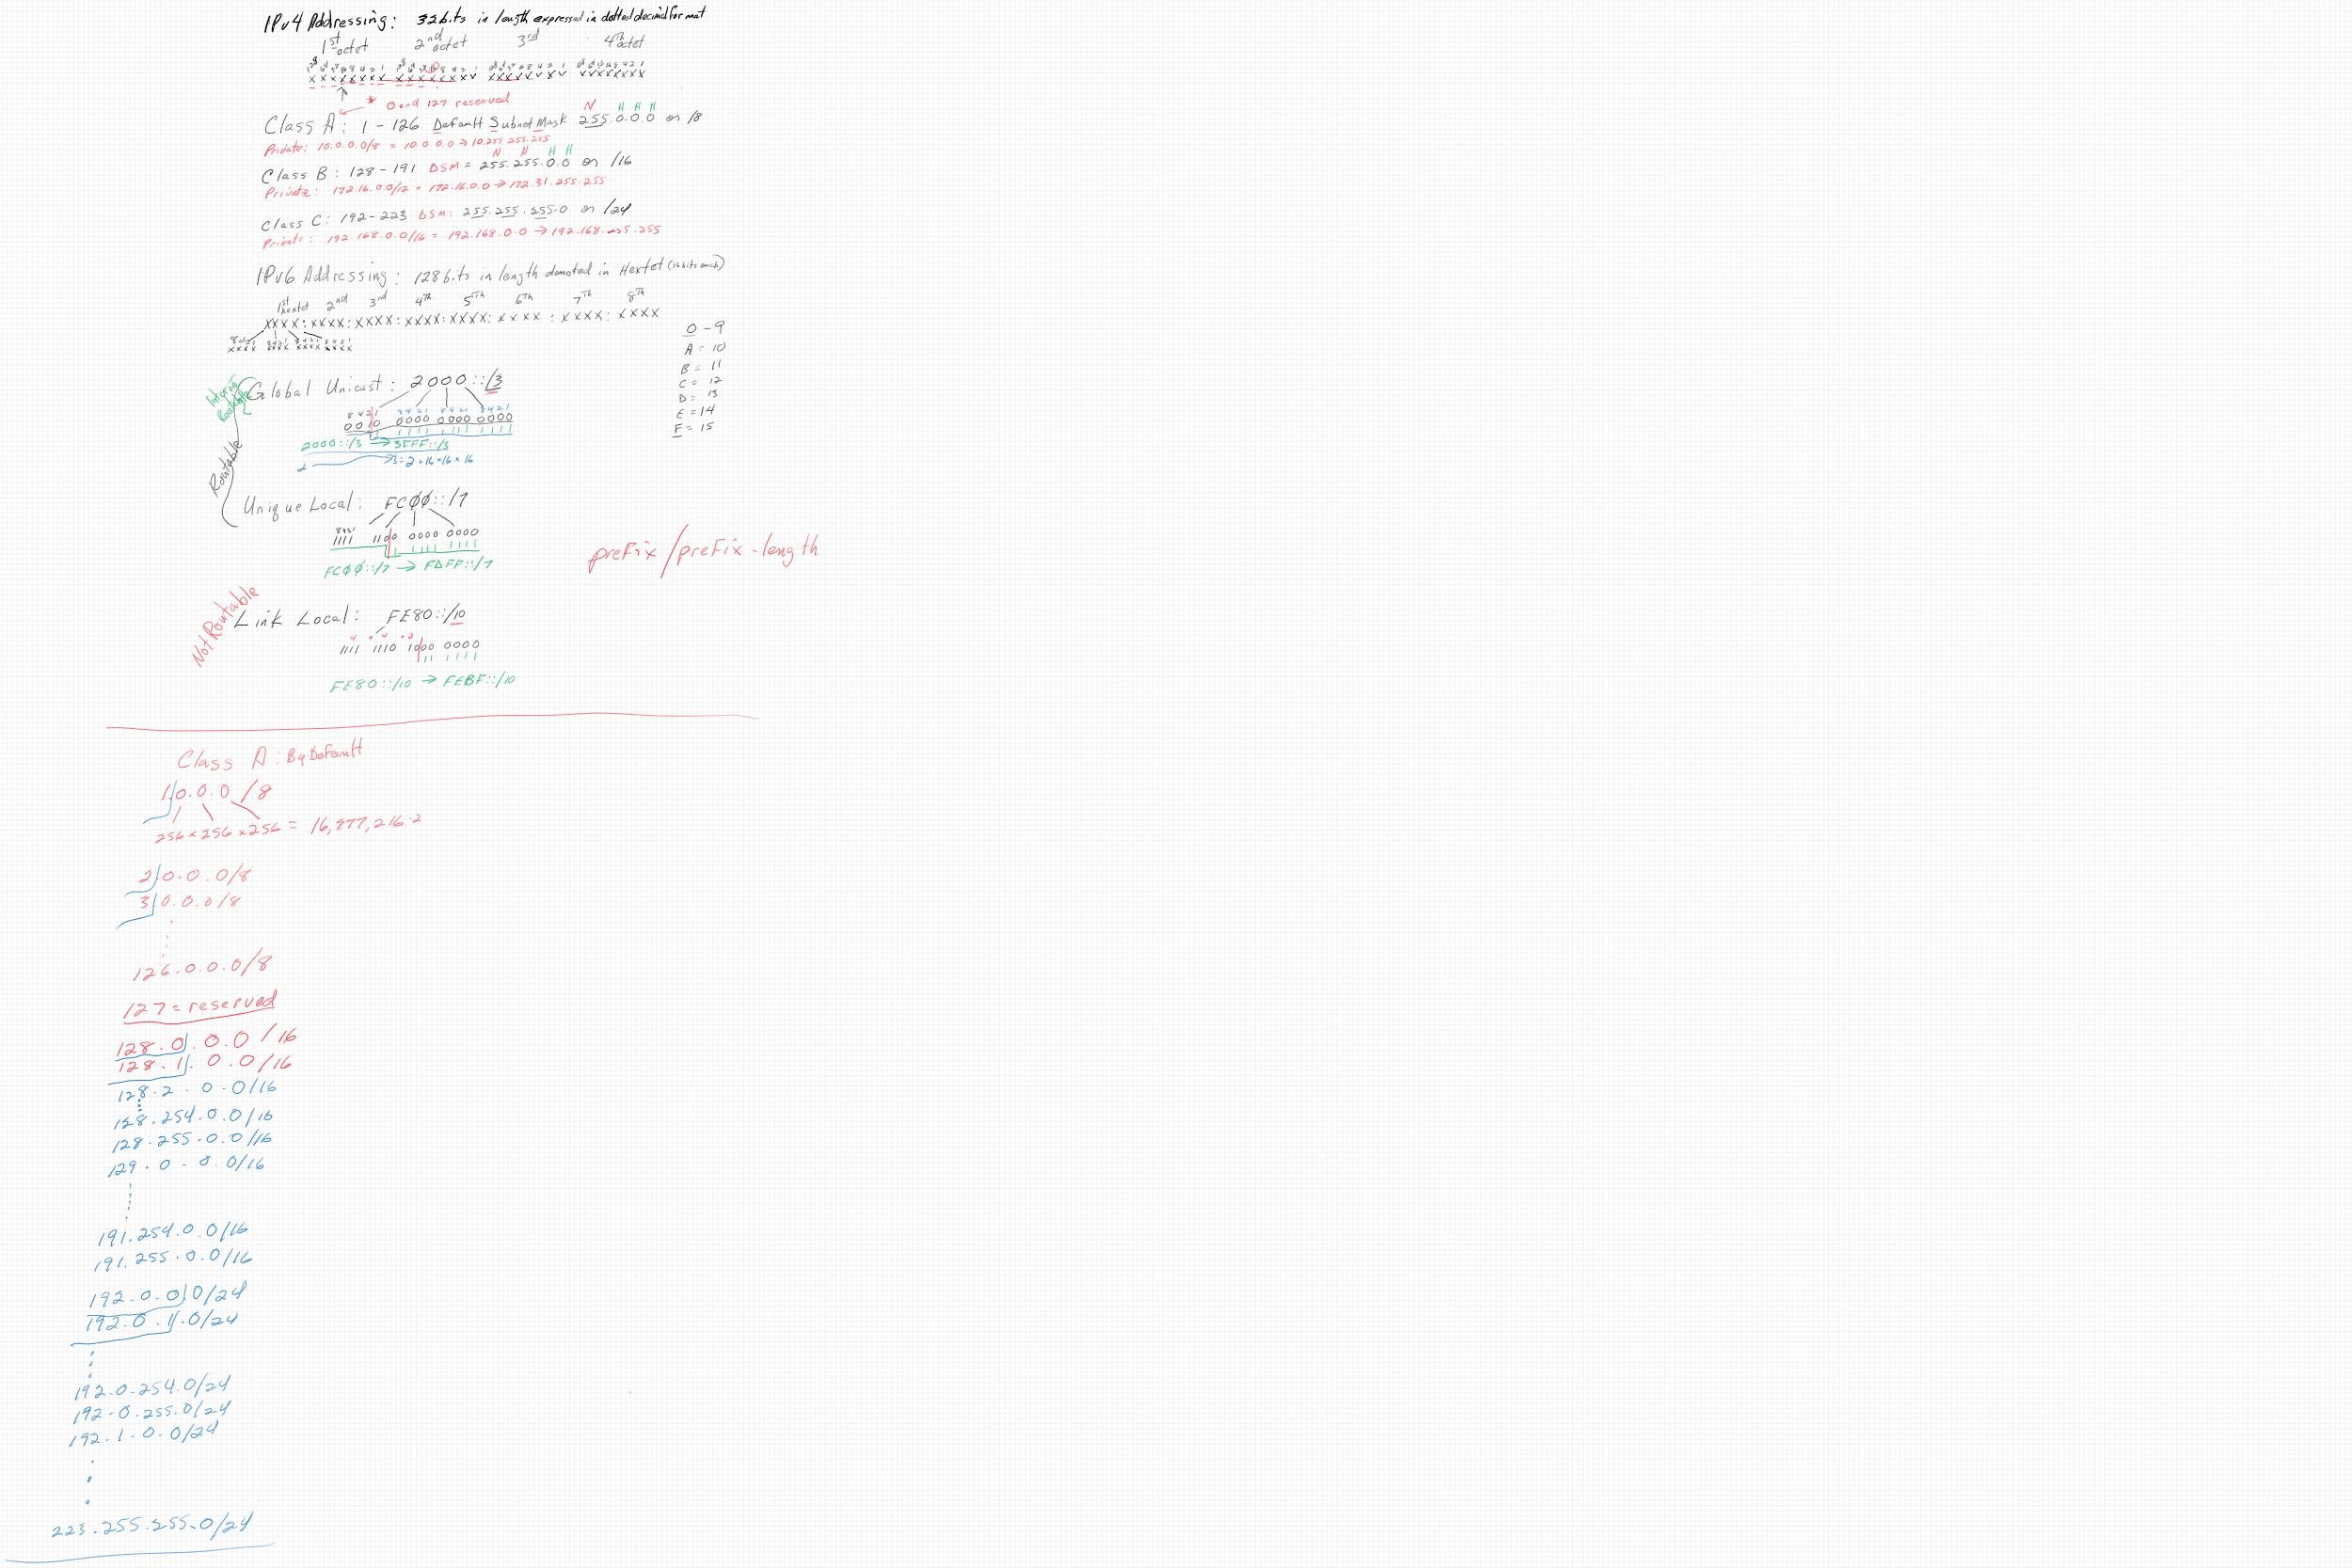 IPv4 Addressing: 32bits in length expressed in dotted decimal format
1st octet 2nd octet 3rd 4th octet
* 0 and 127 reserved
N H H H
Class A: 1 - 126 Default Subnet Mask 255.0.0.0 or /8
Private: 10.0.0.0/8 = 10.0.0.0 → 10.255.255.255
N N H H
Class B: 128 - 191 DSM = 255.255.0.0 or /16
Private: 172.16.0.0/12 = 172.16.0.0 → 172.31.255.255
Class C: 192-223 DSM: 255.255.255.0 or /24
Private: 192.168.0.0/16 = 192.168.0.0 → 192.168.255.255
IPv6 Addressing: 128bits in length denoted in Hextet (16bits each)
1st hextet 2nd 3rd 4th 5th 6th 7th 8th
XXXX:XXXX:XXXX:XXXX:XXXX:XXXX:XXXX:XXXX
8421 8421 8421 8421
xxxx xxxx xxxx xxxx
0 - 9
A = 10
B = 11
C = 12
D = 13
E = 14
F = 15
Routable
Global Unicast: 2000::/3
8421 8421 8421 8421
0010 0000 0000 0000
1 1111 1111 1111
2000::/3 → 3FFF::/3
Unique Local: FCØØ::/7
8421
1111 1100 0000 0000
1 1111 1111
FCØØ::/7 → FDFF::/7
prefix/prefix-length
Not Routable
Link Local: FE80::/10
4 + 4 + 2
1111 1110 1000 0000
11 1111
FE80::/10 → FEBF::/10
Class A: By Default
1.0.0.0 /8
256 x 256 x 256 = 16,777,216-2
2.0.0.0/8
3.0.0.0/8
126.0.0.0/8
127 = reserved
128.0.0.0 /16
128.1.0.0/16
128.2.0.0/16
128.254.0.0/16
128.255.0.0/16
129.0.0.0/16
191.254.0.0/16
191.255.0.0/16
192.0.0.0/24
192.0.1.0/24
192.0.254.0/24
192.0.255.0/24
192.1.0.0/24
223.255.255.0/24